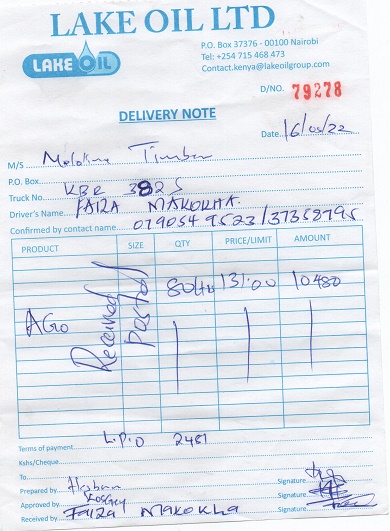 LAKE OIL LTD
LAKE OIL
P.O. Box 37376 - 00100 Nairobi
Tel: +254 715 468 473
Contact.kenya@lakeoilgroup.com
D/NO. 79278
DELIVERY NOTE
Date 16/05/22
M/S Timber
P.O. Box
Truck No. KBR 382S
Driver's Name FAIZA MAKOKHA
Confirmed by contact name
PRODUCT SIZE QTY PRICE/LIMIT AMOUNT
80Ltr 131.00 10480
AGO
Received
Posted
Terms of payment L.P.O 2481
Kshs/Cheque
To
Prepared by Signature
Approved by Signature
Received by Faiza Makokha Signature